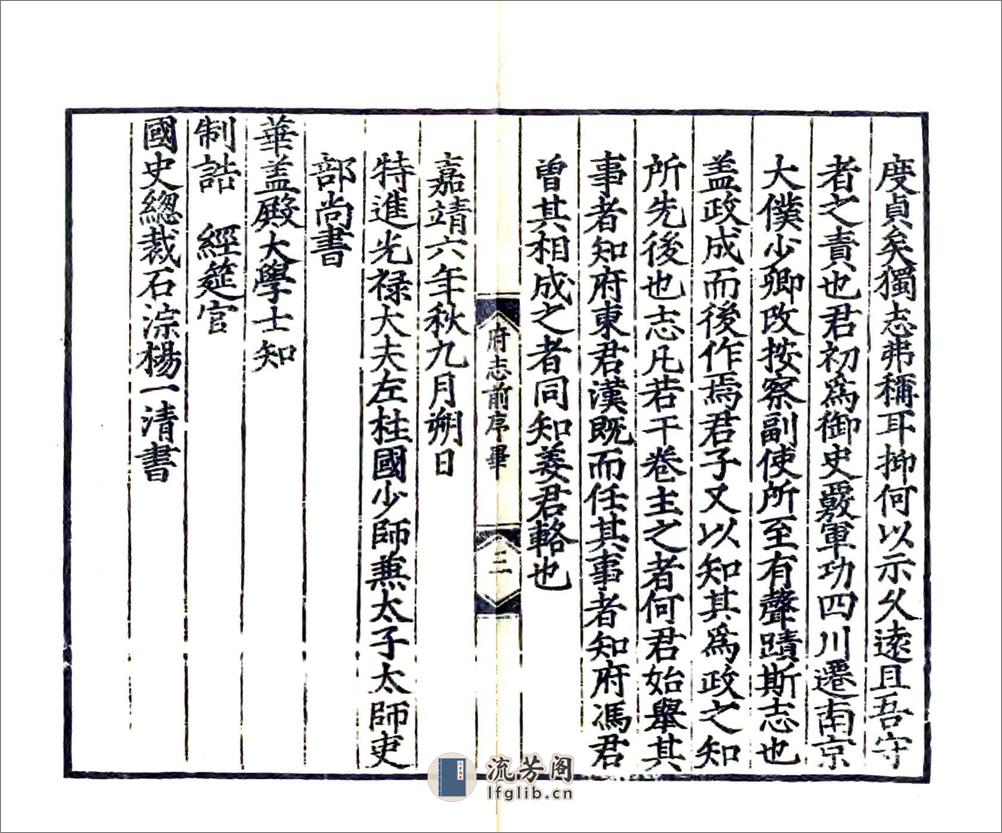 度貞矣獨志弗稱耳抑何以示久遠且吾守
者之責也君初爲御史覈軍功四川遷南京
大僕少卿改按察副使所至有聲蹟斯志也
蓋政成而後作焉君子又以知其爲政之知
所先後也志凡若干卷主之者何君始舉其
事者知府東君漢既而任其事者知府馮君
曾其相成之者同知姜君輅也
府志前序畢
三
嘉靖六年秋九月朔日
特進光禄大夫左柱國少師兼太子太師吏
部尚書
華盖殿大學士知
制誥 經筵官
國史總裁石淙楊一清書
流芳阁
lfglib.cn